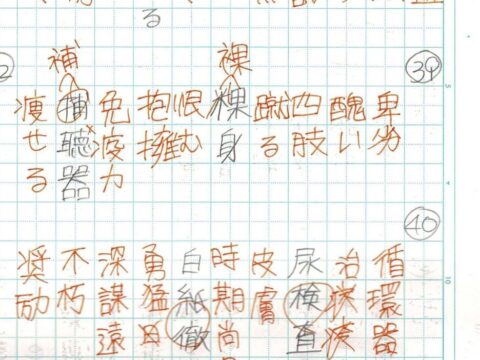 る
39
卑劣
醜い
四肢
蹴る
裸
身
恨む
抱擁
免疫力
補
聴器
痩せる
40
循環器
治
尿検査
皮膚
時期尚
白紙徹
勇猛
深謀遠
不朽
奨励